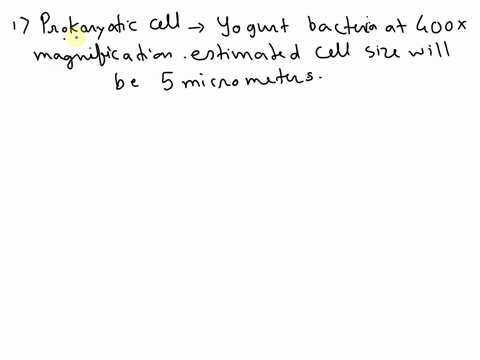 1) Prokaryotic cell → Yogurt bacteria at 400x
magnification. estimated cell size will
be 5 micrometers.